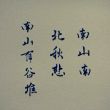 南山南
北秋悲
南山有谷堆